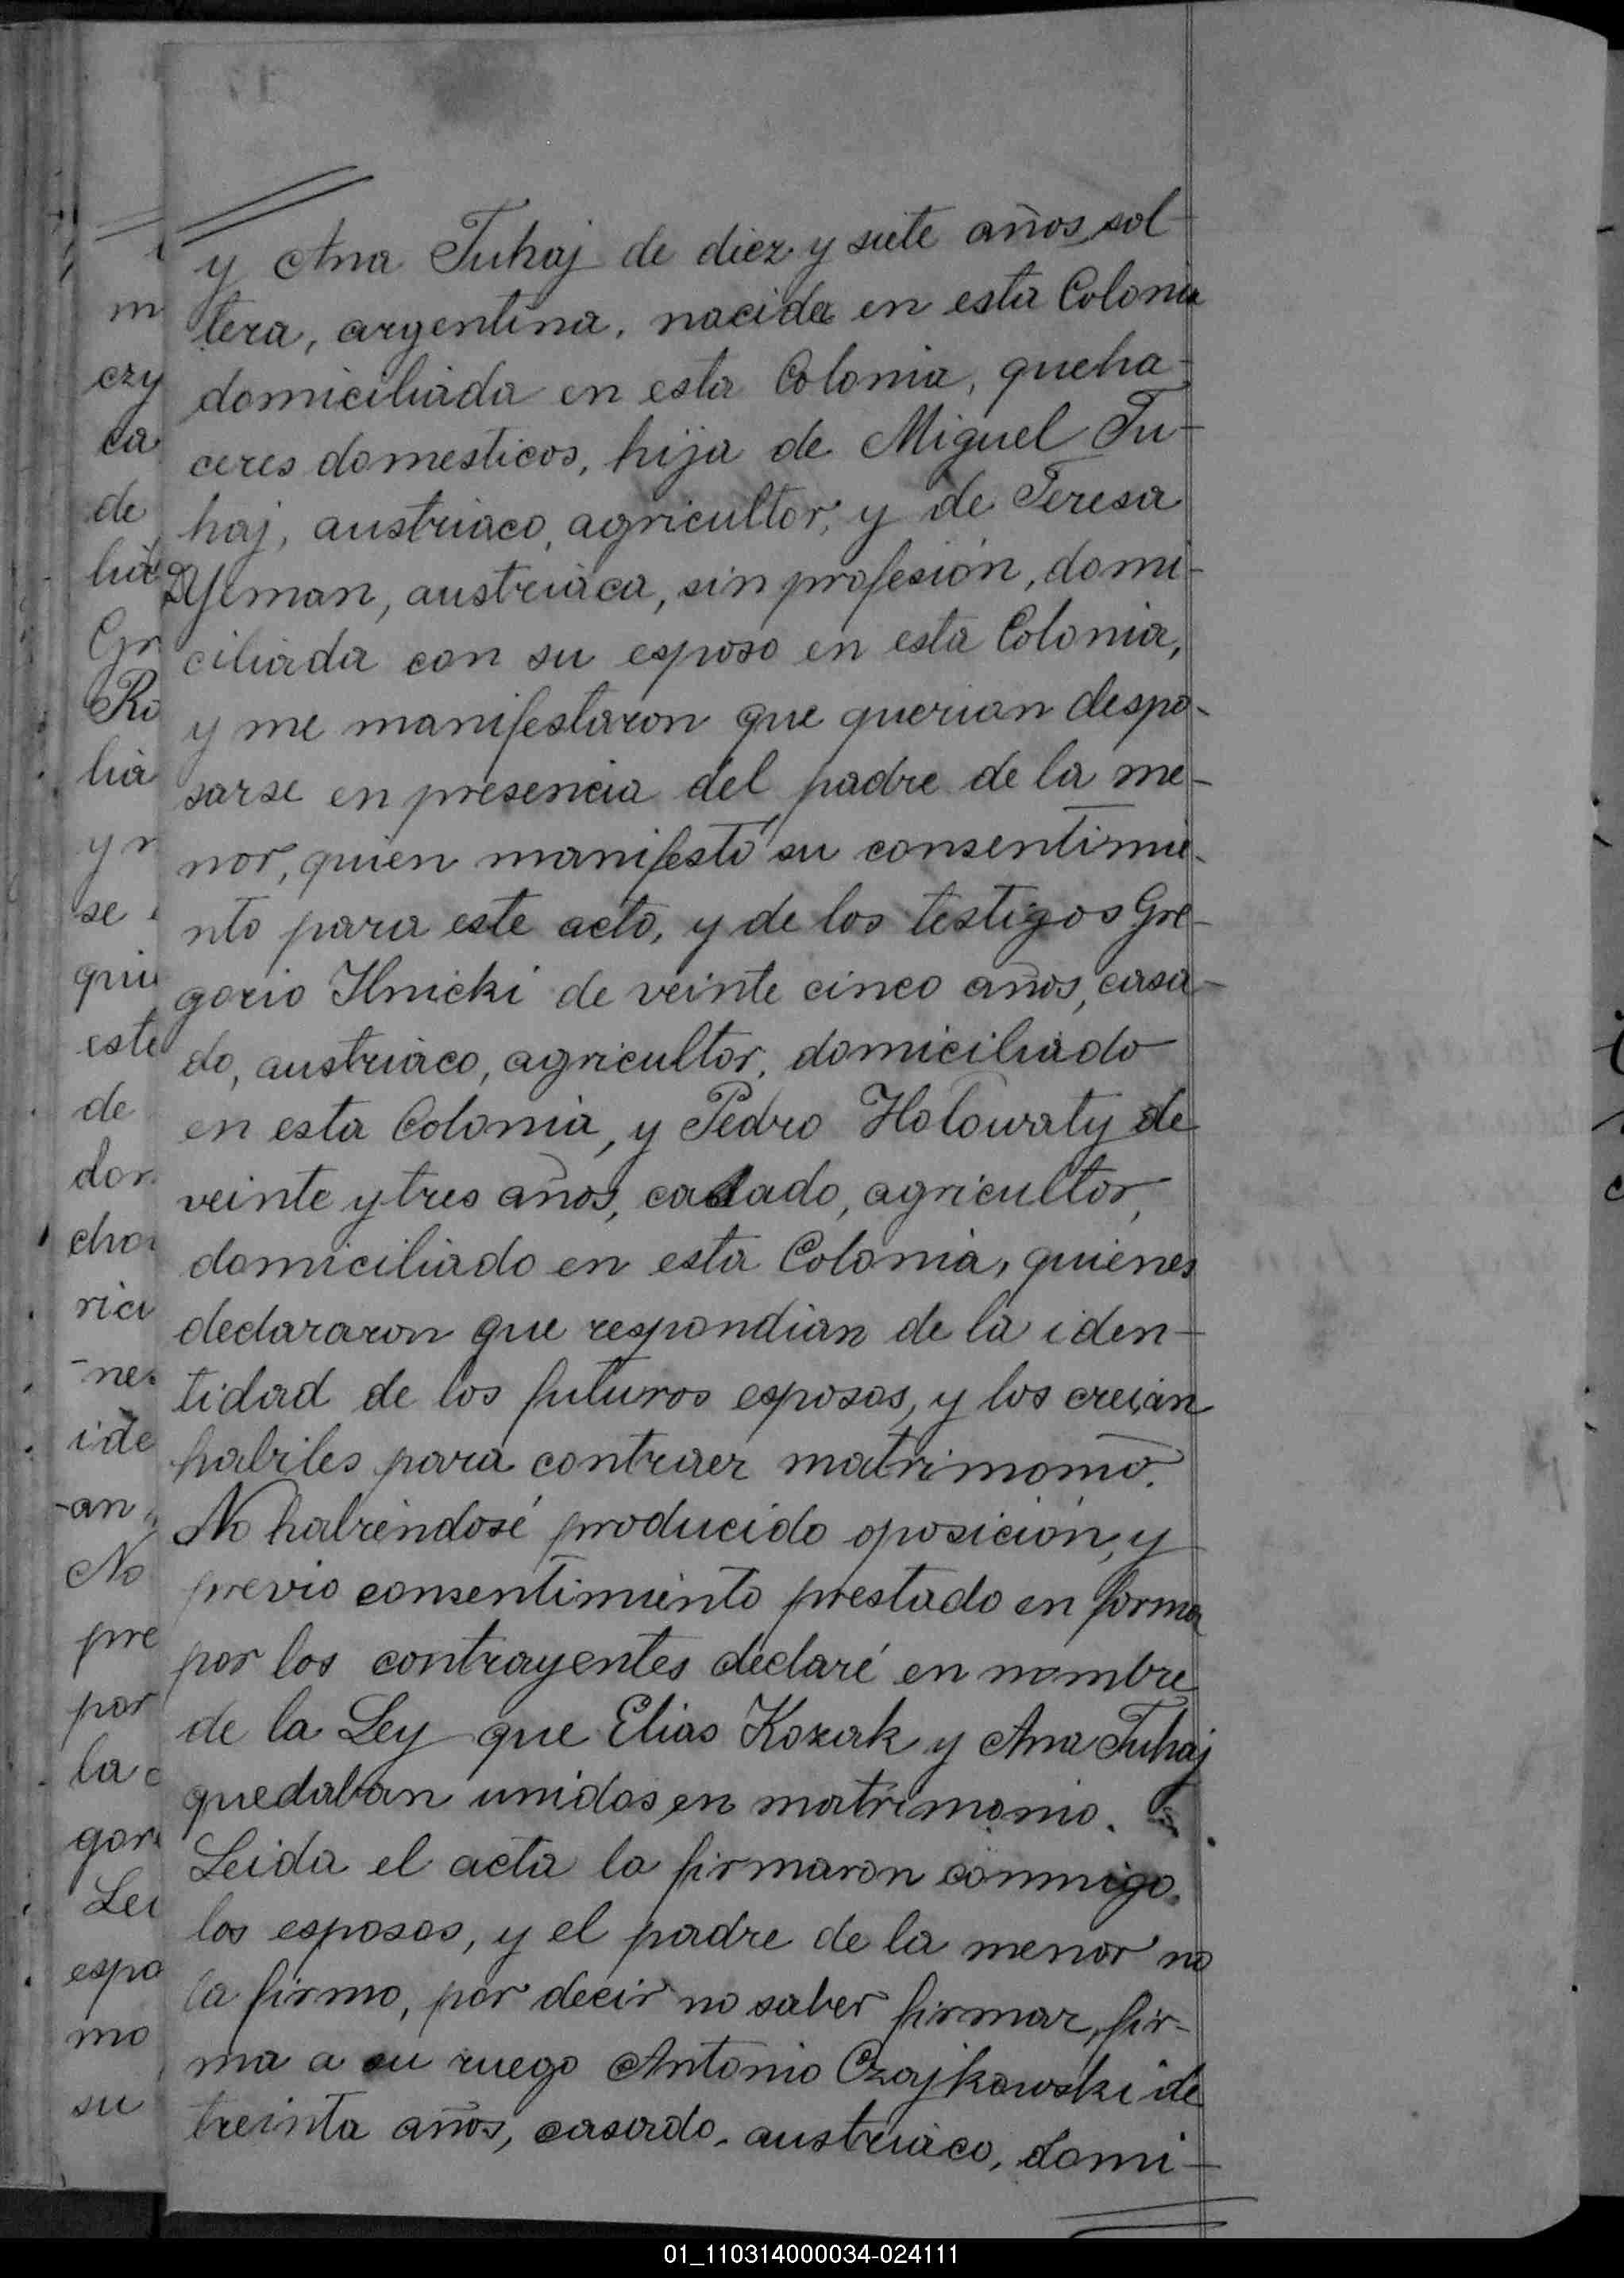 y Ana Tuhaj de diez y siete años sol-
tera, argentina, nacida en esta Colonia
domiciliada en esta Colonia, queha-
ceres domesticos, hija de Miguel Tu-
haj, austriaco, agricultor, y de Teresa
austriaca, sin profesión, domi-
ciliada con su esposo en esta Colonia,
y me manifestaron que querian despo-
sarse en presencia del padre de la me-
nor, quien manifestó su consentimie-
nto para este acto, y de los testigos Gre-
gorio Ilnicki de veinte cinco años, casa-
do, austriaco, agricultor, domiciliado
en esta Colonia, y Pedro Holowaty de
veinte y tres años, casado, agricultor,
domiciliado en esta Colonia, quienes
declararon que respondian de la iden-
tidad de los futuros esposos, y los creian
habiles para contraer matrimonio.
No habiendosé producido oposición, y
previo consentimiento prestado en forma
por los contrayentes declaré en nombre
de la Ley que Elias Kozak y Ana Tuhaj
quedaban unidos en matrimonio.
Leida el acta la firmaron conmigo,
los esposos, y el padre de la menor no
la firmo, por decir no saber firmar, fir-
ma a su ruego Antonio Czajkowski de
treinta años, casado, austriaco, domi-
01_110314000034-024111